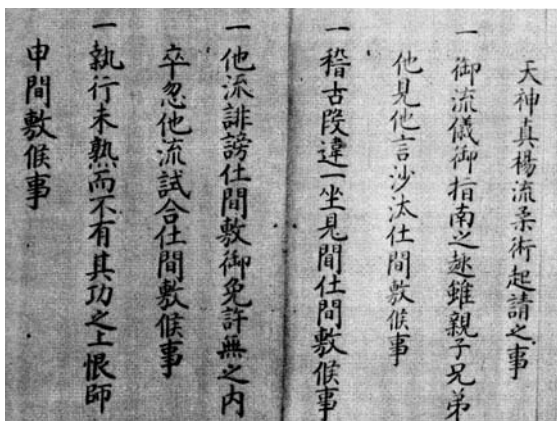 天神真楊流柔術起請之事
一 御流儀御指南之趣雖親子兄弟
他見他言沙汰仕間敷候事
一 稽古段違一坐見聞仕間敷候事
一 他流誹謗仕間敷御免許無之内
卒忽他流試合仕間敷候事
一 執行未熟而不有其功之上恨師
申間敷候事